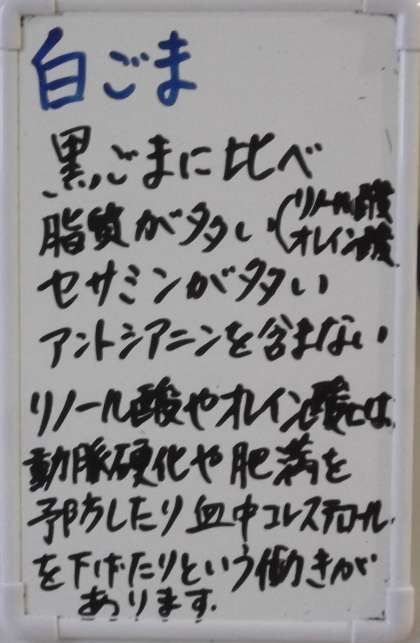 白ごま
黒ごまに比べ
脂質が多い(リノール酸
オレイン酸
セサミンが多い
アントシアニンを含まない
リノール酸やオレイン酸には
動脈硬化や肥満を
予防したり血中コレステロール
を下げたりという働きが
あります.